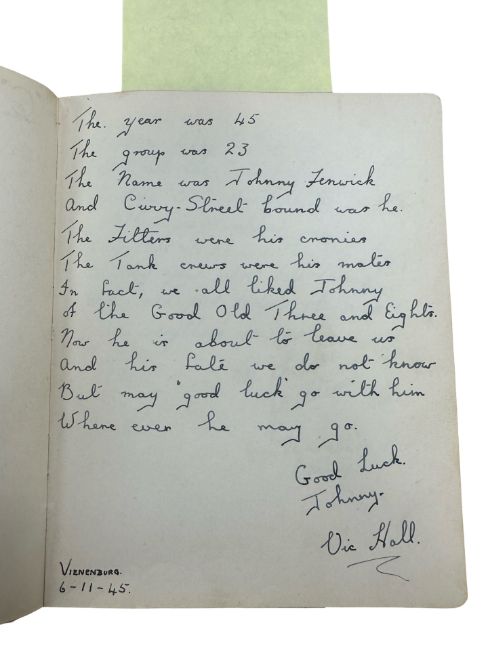 The. year was 45
The group was 23
The Name was Johnny Fenwick
And Civvy-Street bound was he.
The Fitters were his cronies
The Tank crews were his mates
In fact, we all liked Johnny
of the Good Old Three and Eights.
Now he is about to leave us
And his fate we do not know
But may "good luck" go with him
Where ever he may go.
Good Luck.
Johnny.
Vic Hall.
VIENENBURG.
6-11-45.